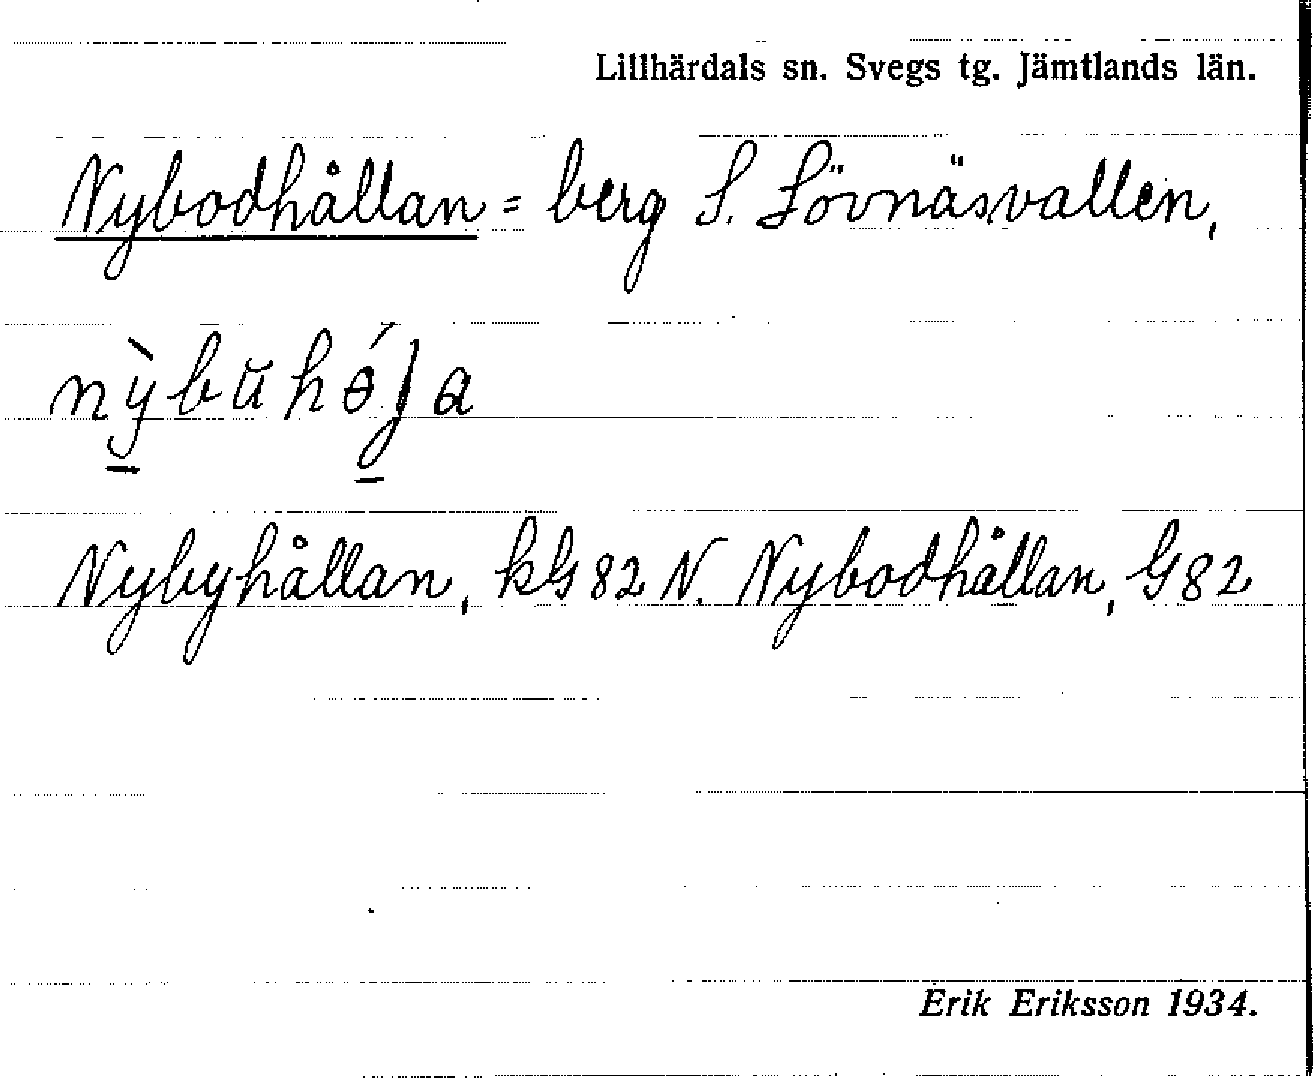 Lillhärdals sn. Svegs tg. Jämtlands län.
Nybodhållan = berg S. Lövnäsvallen,
Nybyhållan, kG 82 N. Nybodhållan, G 82
Erik Eriksson 1934.